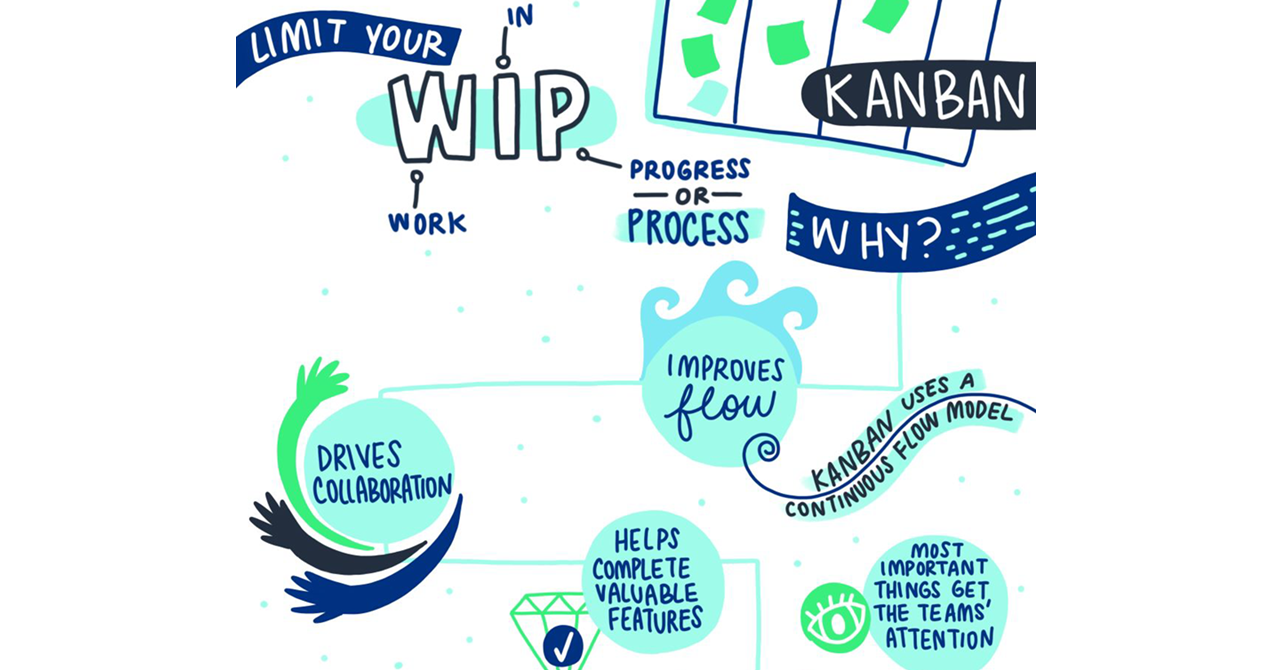 LIMIT YOUR
IN
WIP
WORK
PROGRESS
OR
PROCESS
KANBAN
WHY?
IMPROVES
flow
KANBAN USES A
CONTINUOUS FLOW MODEL
DRIVES
COLLABORATION
HELPS
COMPLETE
VALUABLE
FEATURES
MOST
IMPORTANT
THINGS GET
THE TEAMS'
ATTENTION